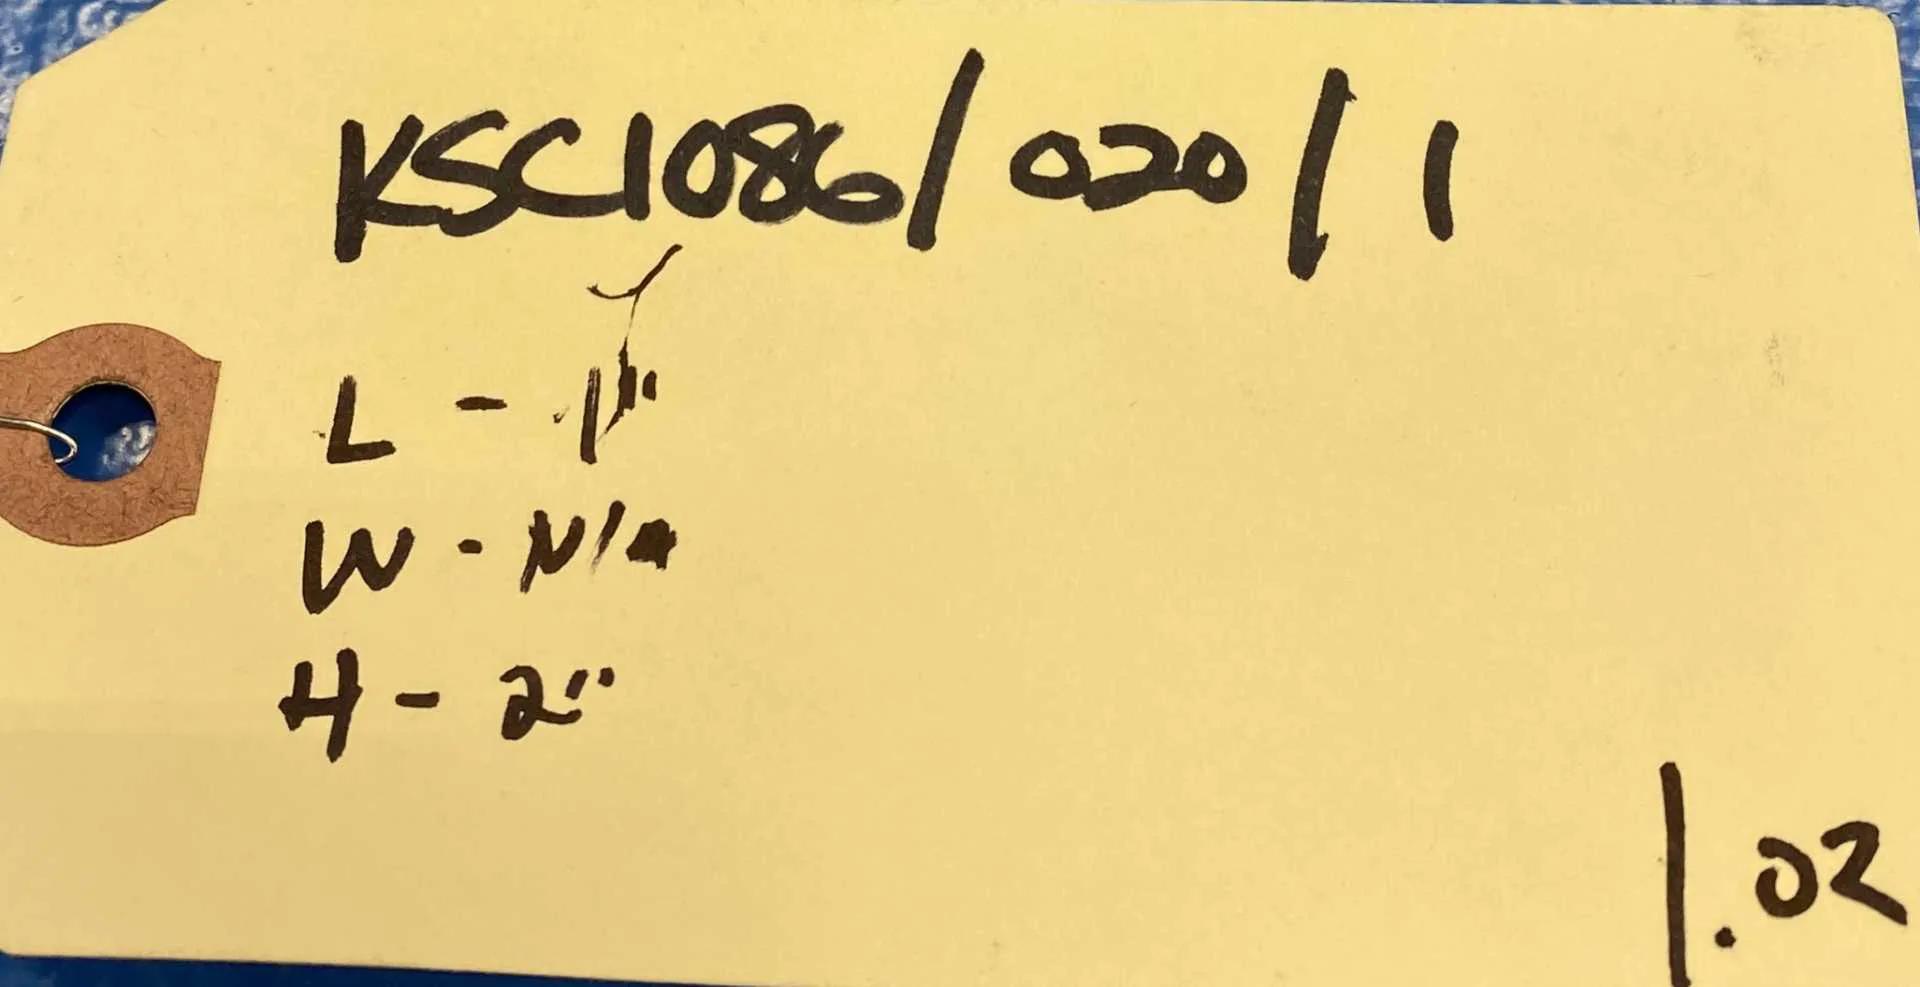 KSC1086/020/1
L - 1"
W - N/A
H - 2"
1.02